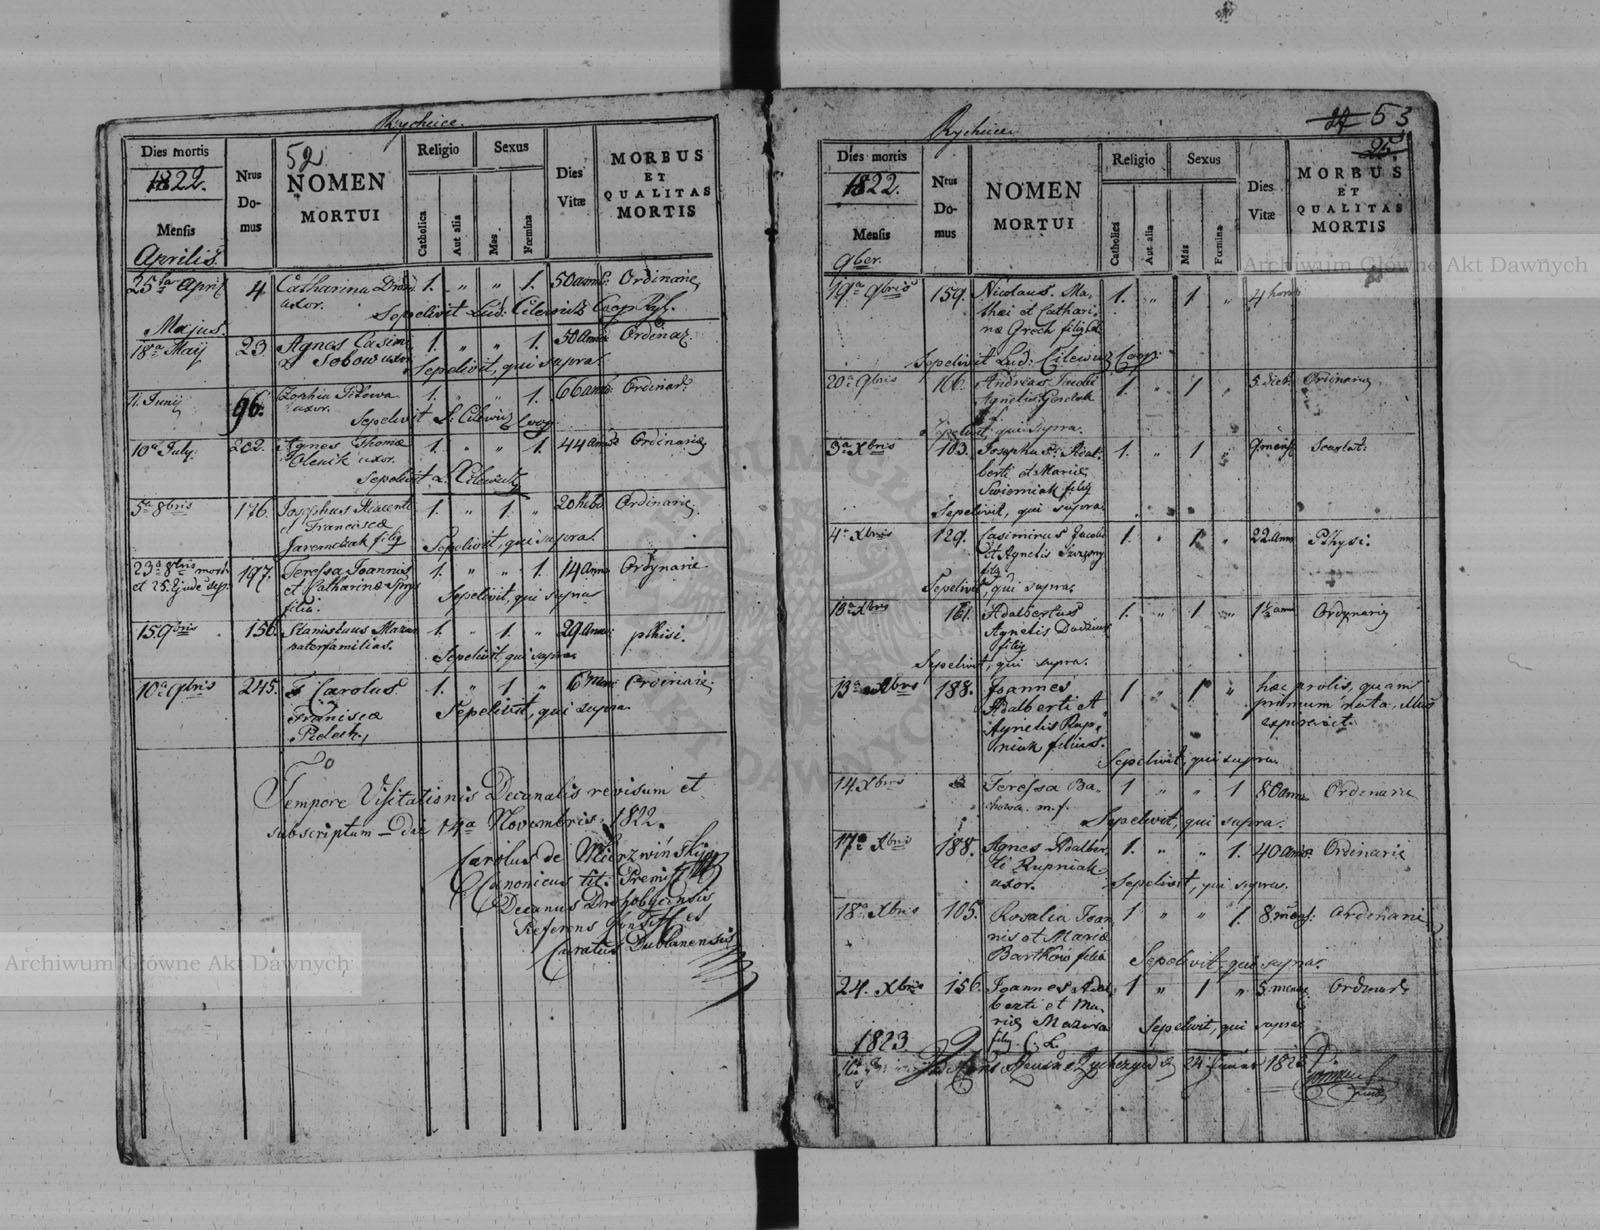 Rychcice.
Dies mortis
1822.
Mensis
Nrus
Do-
mus
52
NOMEN
MORTUI
Religio
Catholica
Aut alia
Sexus
Mas
Fœmina
Dies
Vitæ
MORBUS
ET
QUALITAS
MORTIS
Aprilis.
25ta April 4 Catharina 1. " " 1. 50 ann: Ordinarie
uxor. Sepelivit Lud: Cilewicz Coop.
Majus.
18a Maij 23. Agnes Casimi 1. " " 1. 50 ann: Ordinar.
Sobow uxor Sepelivit, qui supra.
11. Junij 96. Zophia 1. " " 1. 66 ann: Ordinar.
uxor. Sepelivit L. Cilewicz Coop.
10a July. 202. Agnes Thomæ 1. " " 1. 44 ann: Ordinarie
Olenik uxor.
Sepelivit L. Cilewicz
5a 8bris 176. Josephus Hiacenti 1. " 1. " 20 hebd Ordinarie
et Franciscæ
Jaremczak filij Sepelivit, qui supra.
23a 8bris mort: 197. Teressa Joannis 1. " " 1. 14 ann: Ordynarie
et 25. Ejusd: sep. et Catharinæ
filia. Sepelivit, qui supra
15 9bris 156 Stanislaus Mazur 1. " 1. " 29 ann: pthisi.
paterfamilias. Sepelivit, qui supra
10a 9bris 245. Carolus 1. " 1. " 6 Men: Ordinarie
Franciscæ Sepelivit, qui supra
Tempore Visitationis Decanalis revisum et
subscriptum Die 14a Novembris 1822.
Carolus de Mierzwiński
Canonicus tit. Premisl
Decanus Drohobycensis
Referens
Curatus Dublanensis
Rychcice
53
Dies mortis
1822.
Mensis
9ber.
Nrus
Do-
mus
NOMEN
MORTUI
Religio
Catholica
Aut alia
Sexus
Mas
Fœmina
Dies
Vitæ
MORBUS
ET
QUALITAS
MORTIS
19a 9bris 159. Nicolaus Ma- 1. " 1 " 4 hora
thæi et Cathari-
næ Groch filij
Sepelivit Lud: Cilewicz Coop:
20a 9bris 166. Andreas Jacobi 1. " 1 " 5 dieb: Ordinarie
Agnetis
Sepelivit, qui supra.
3a Xbris 103. Josephus Adal- 1. " 1 " 9 mens Scarlat:
berti et Mariæ
Swierniak filij
Sepelivit, qui supra
4a Xbris 129. Casimirus Jacobi 1. " 1 " 22 ann Pthysi.
et Agnetis
filij
Sepelivit, qui supra
161. Adalbertus 1. " 1 " 1½ ann Ordynarie
Agnetis
filij
Sepelivit, qui supra.
13a Xbris 188. Joannes 1 " 1 " hæc prolis, quam
Adalberti et primum nata, illico
Agnetis Rup- expiravit.
niak filius.
Sepelivit, qui supra
14 Xbris Teressa Ba- 1 " " 1 80 ann Ordinarie
chowa. m. f.
Sepelivit, qui supra.
17a Xbris 188. Agnes Adalber- 1. " " 1. 40 ann: Ordinarie
ti Rupniak
uxor. Sepelivit, qui supra.
18a Xbris 105. Rosalia Joan 1 " " 1. 8 mens: Ordinarie
nis et Mariæ
Bartkow filia Sepelivit, qui supra.
24. Xbris 156. Joannes Adal 1 " 1 " 5 mens Ordinar
berti et Ma-
riæ Mazura
filij. C. L. Sepelivit, qui supra
1823
24 Januar 1823
Archiwum Główne Akt Dawnych
Archiwum Główne Akt Dawnych